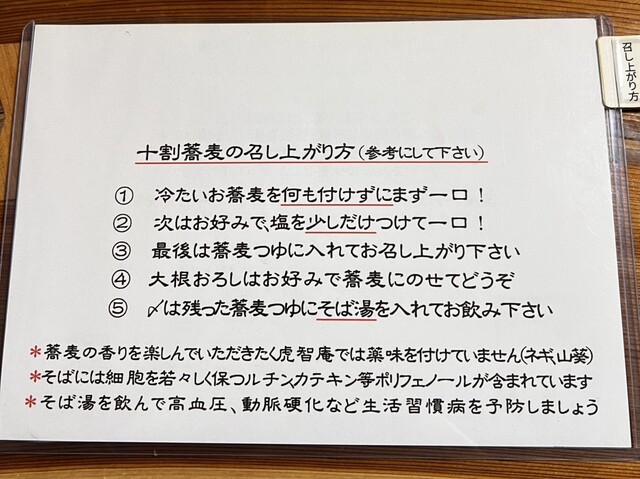 召し上がり方
十割蕎麦の召し上がり方(参考にして下さい)
① 冷たいお蕎麦を何も付けずにまず一口!
② 次はお好みで、塩を少しだけつけて一口!
③ 最後は蕎麦つゆに入れてお召し上がり下さい
④ 大根おろしはお好みで蕎麦にのせてどうぞ
⑤ 〆は残った蕎麦つゆにそば湯を入れてお飲み下さい
*蕎麦の香りを楽しんでいただきたく虎智庵では薬味を付けていません(ネギ、山葵)
*そばには細胞を若々しく保つルチン、カテキン等ポリフェノールが含まれています
*そば湯を飲んで高血圧、動脈硬化など生活習慣病を予防しましょう